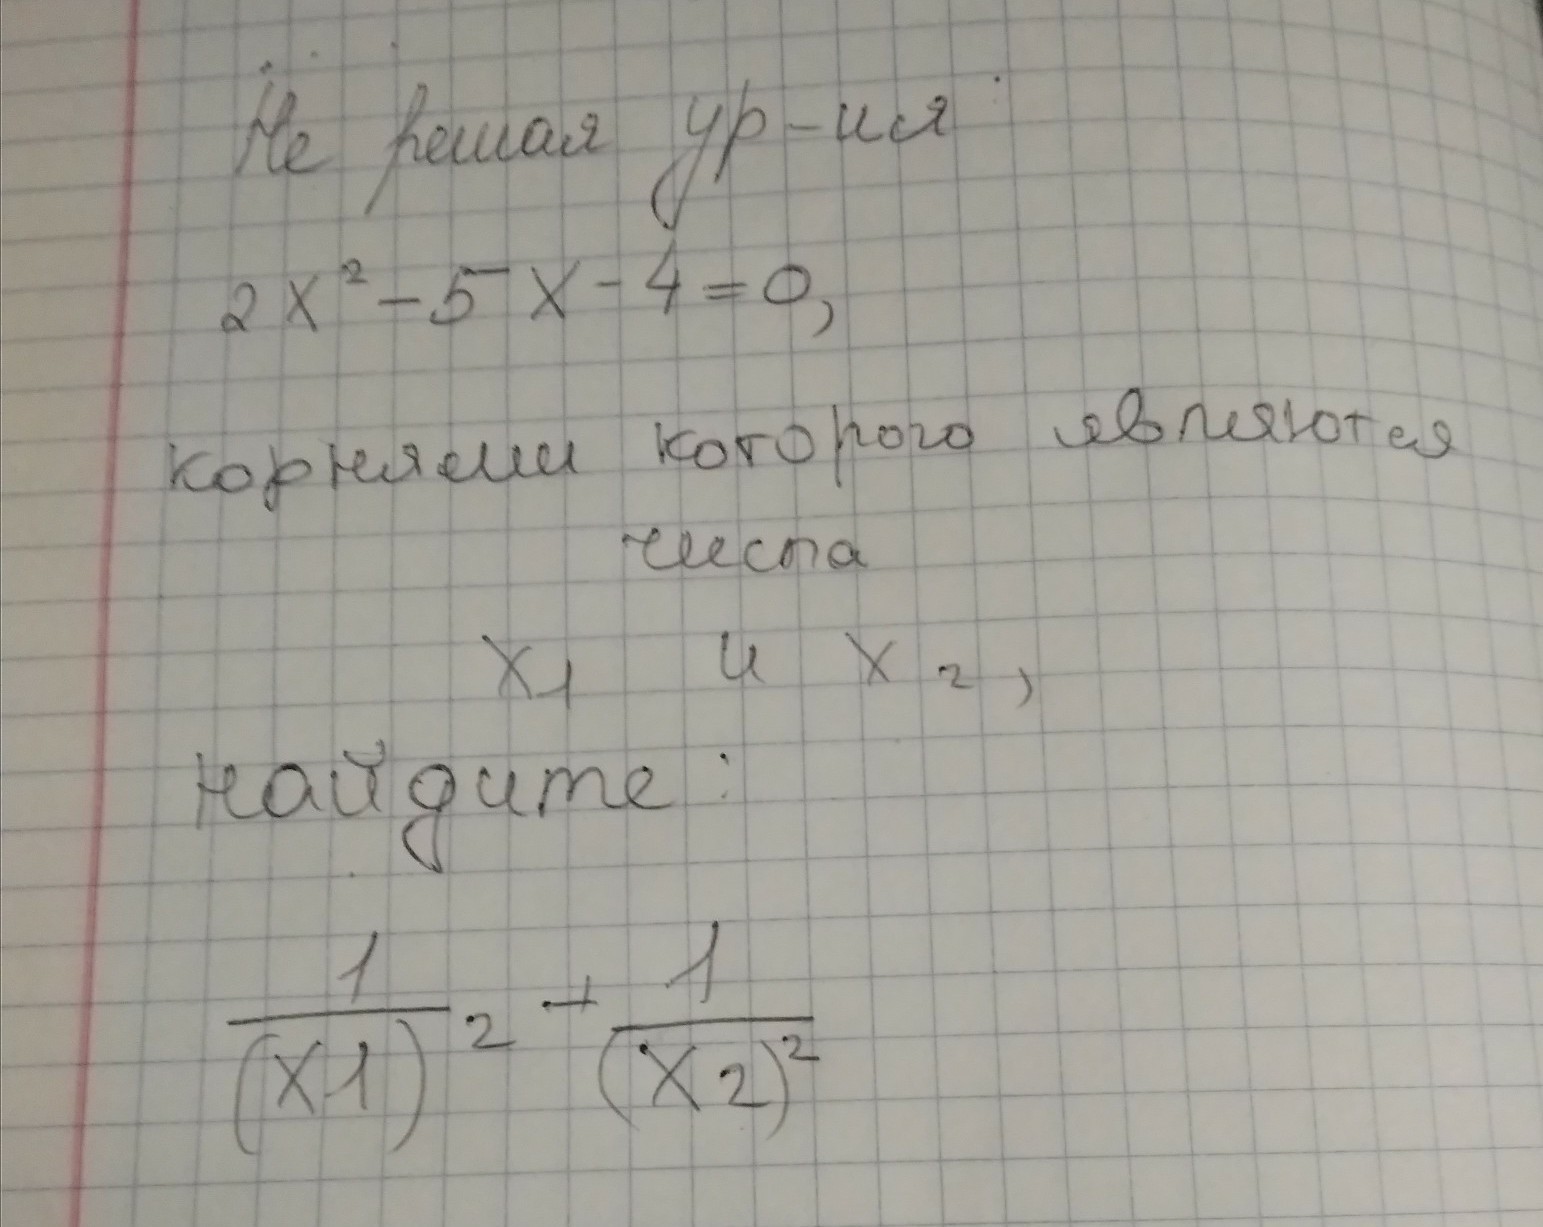 Не решая ур-ия
2x² - 5x - 4 = 0,
корнями которого являются
числа
x₁ и x₂,
найдите:
1/(x1)² + 1/(x2)²